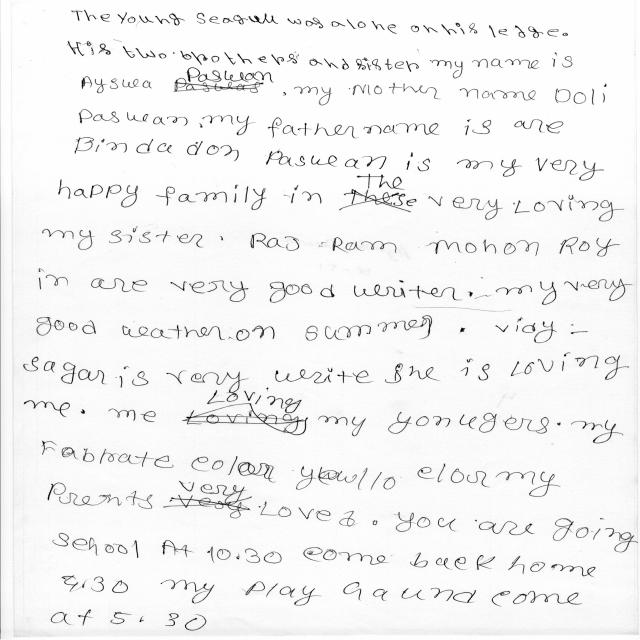 The Young Seagull was alone on his ledge.
His two brothers and sister my name is
Aysuea Pasuean, my Mother name Doli
Pasuean, my father name is are
Bindadon Pasuean is my very
happy family in The very Loving
my sister. Raj Ram mohon Roy
in are very good ueriter. my very
good aeather.on summer. viay -
sagar is very uerite She is LOVING
me. me Loving my yonugers. my
Fabtrate eolar yewllo eloor my
Prernts very Loves. you are going
School At 10.30 eome baek home
4.30 my Play Gaund eome
at 5.30